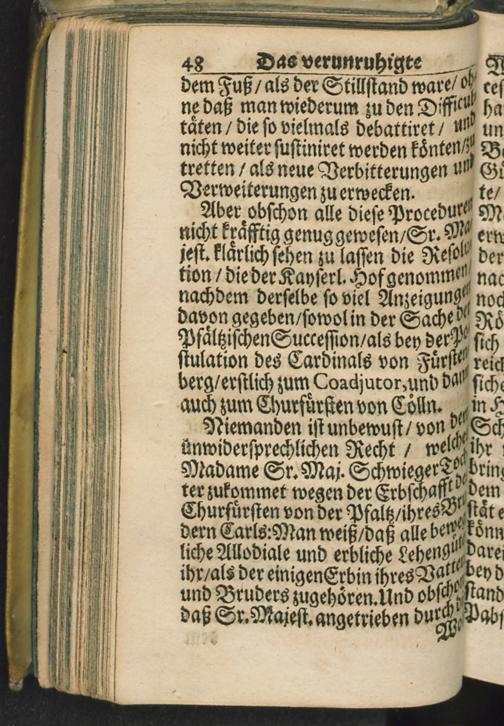 48 Das verunruhigte
dem Fuß / als der Stillstand ware / oh
ne daß man wiederum zu den Difficul
täten / die so vielmals debattiret / und
nicht weiter sustiniret werden könten / zu
tretten / als neue Verbitterungen und
Verweiterungen zu erwecken.
Aber obschon alle diese Proceduren
nicht kräfftig genug gewesen / Sr. Ma
jest. klärlich sehen zu lassen die Resolu
tion / die der Kayserl. Hof genommen /
nachdem derselbe so viel Anzeigungen
davon gegeben / sowol in der Sache der
Pfältzischen Succession / als bey der Po
stulation des Cardinals von Fürsten
berg / erstlich zum Coadjutor, und dann
auch zum Churfürsten von Cölln.
Niemanden ist unbewust / von dem
ünwidersprechlichen Recht / welches
Madame Sr. Maj. Schwieger Toch
ter zukommet wegen der Erbschafft des
Churfürsten von der Pfaltz / ihres Bru
dern Carls: Man weiß / daß alle beweg
liche Allodiale und erbliche Lehengüter
ihr / als der einigen Erbin ihres Vatters
und Bruders zugehören. Und obschon
daß Sr. Majest. angetrieben durch